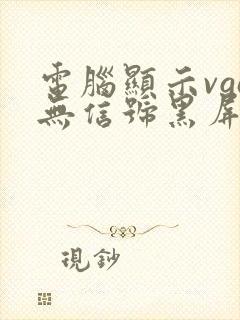 電腦顯示vga
無信號黑屏
現鈔